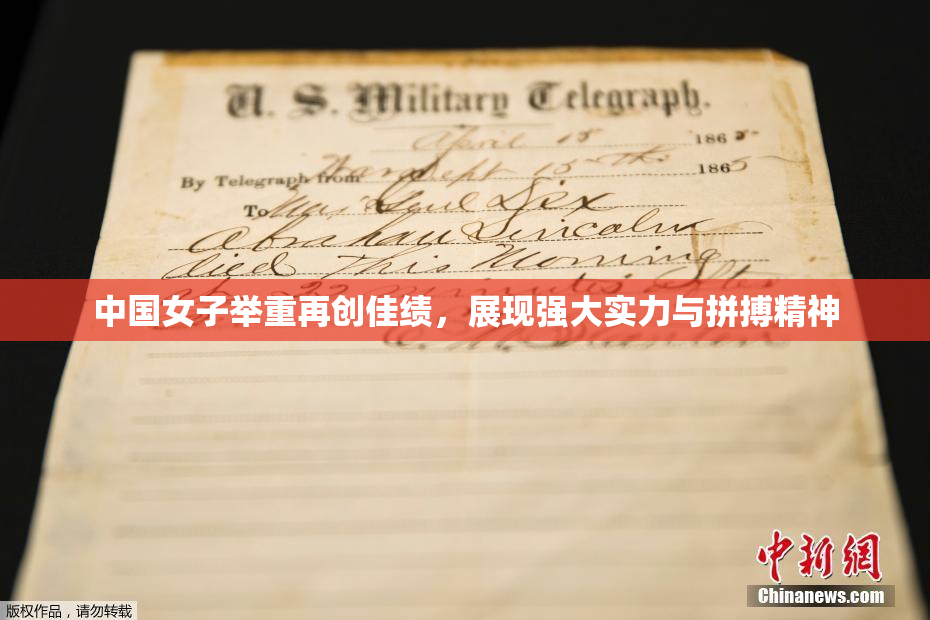 U. S. Military Telegraph.
April 15 1865
By Telegraph from War Dept 15th 1865
To Maj Genl Dix
Abraham Lincoln
died This Morning
22 minutes after
中国女子举重再创佳绩，展现强大实力与拼搏精神
中新网
Chinanews.com
版权作品，请勿转载